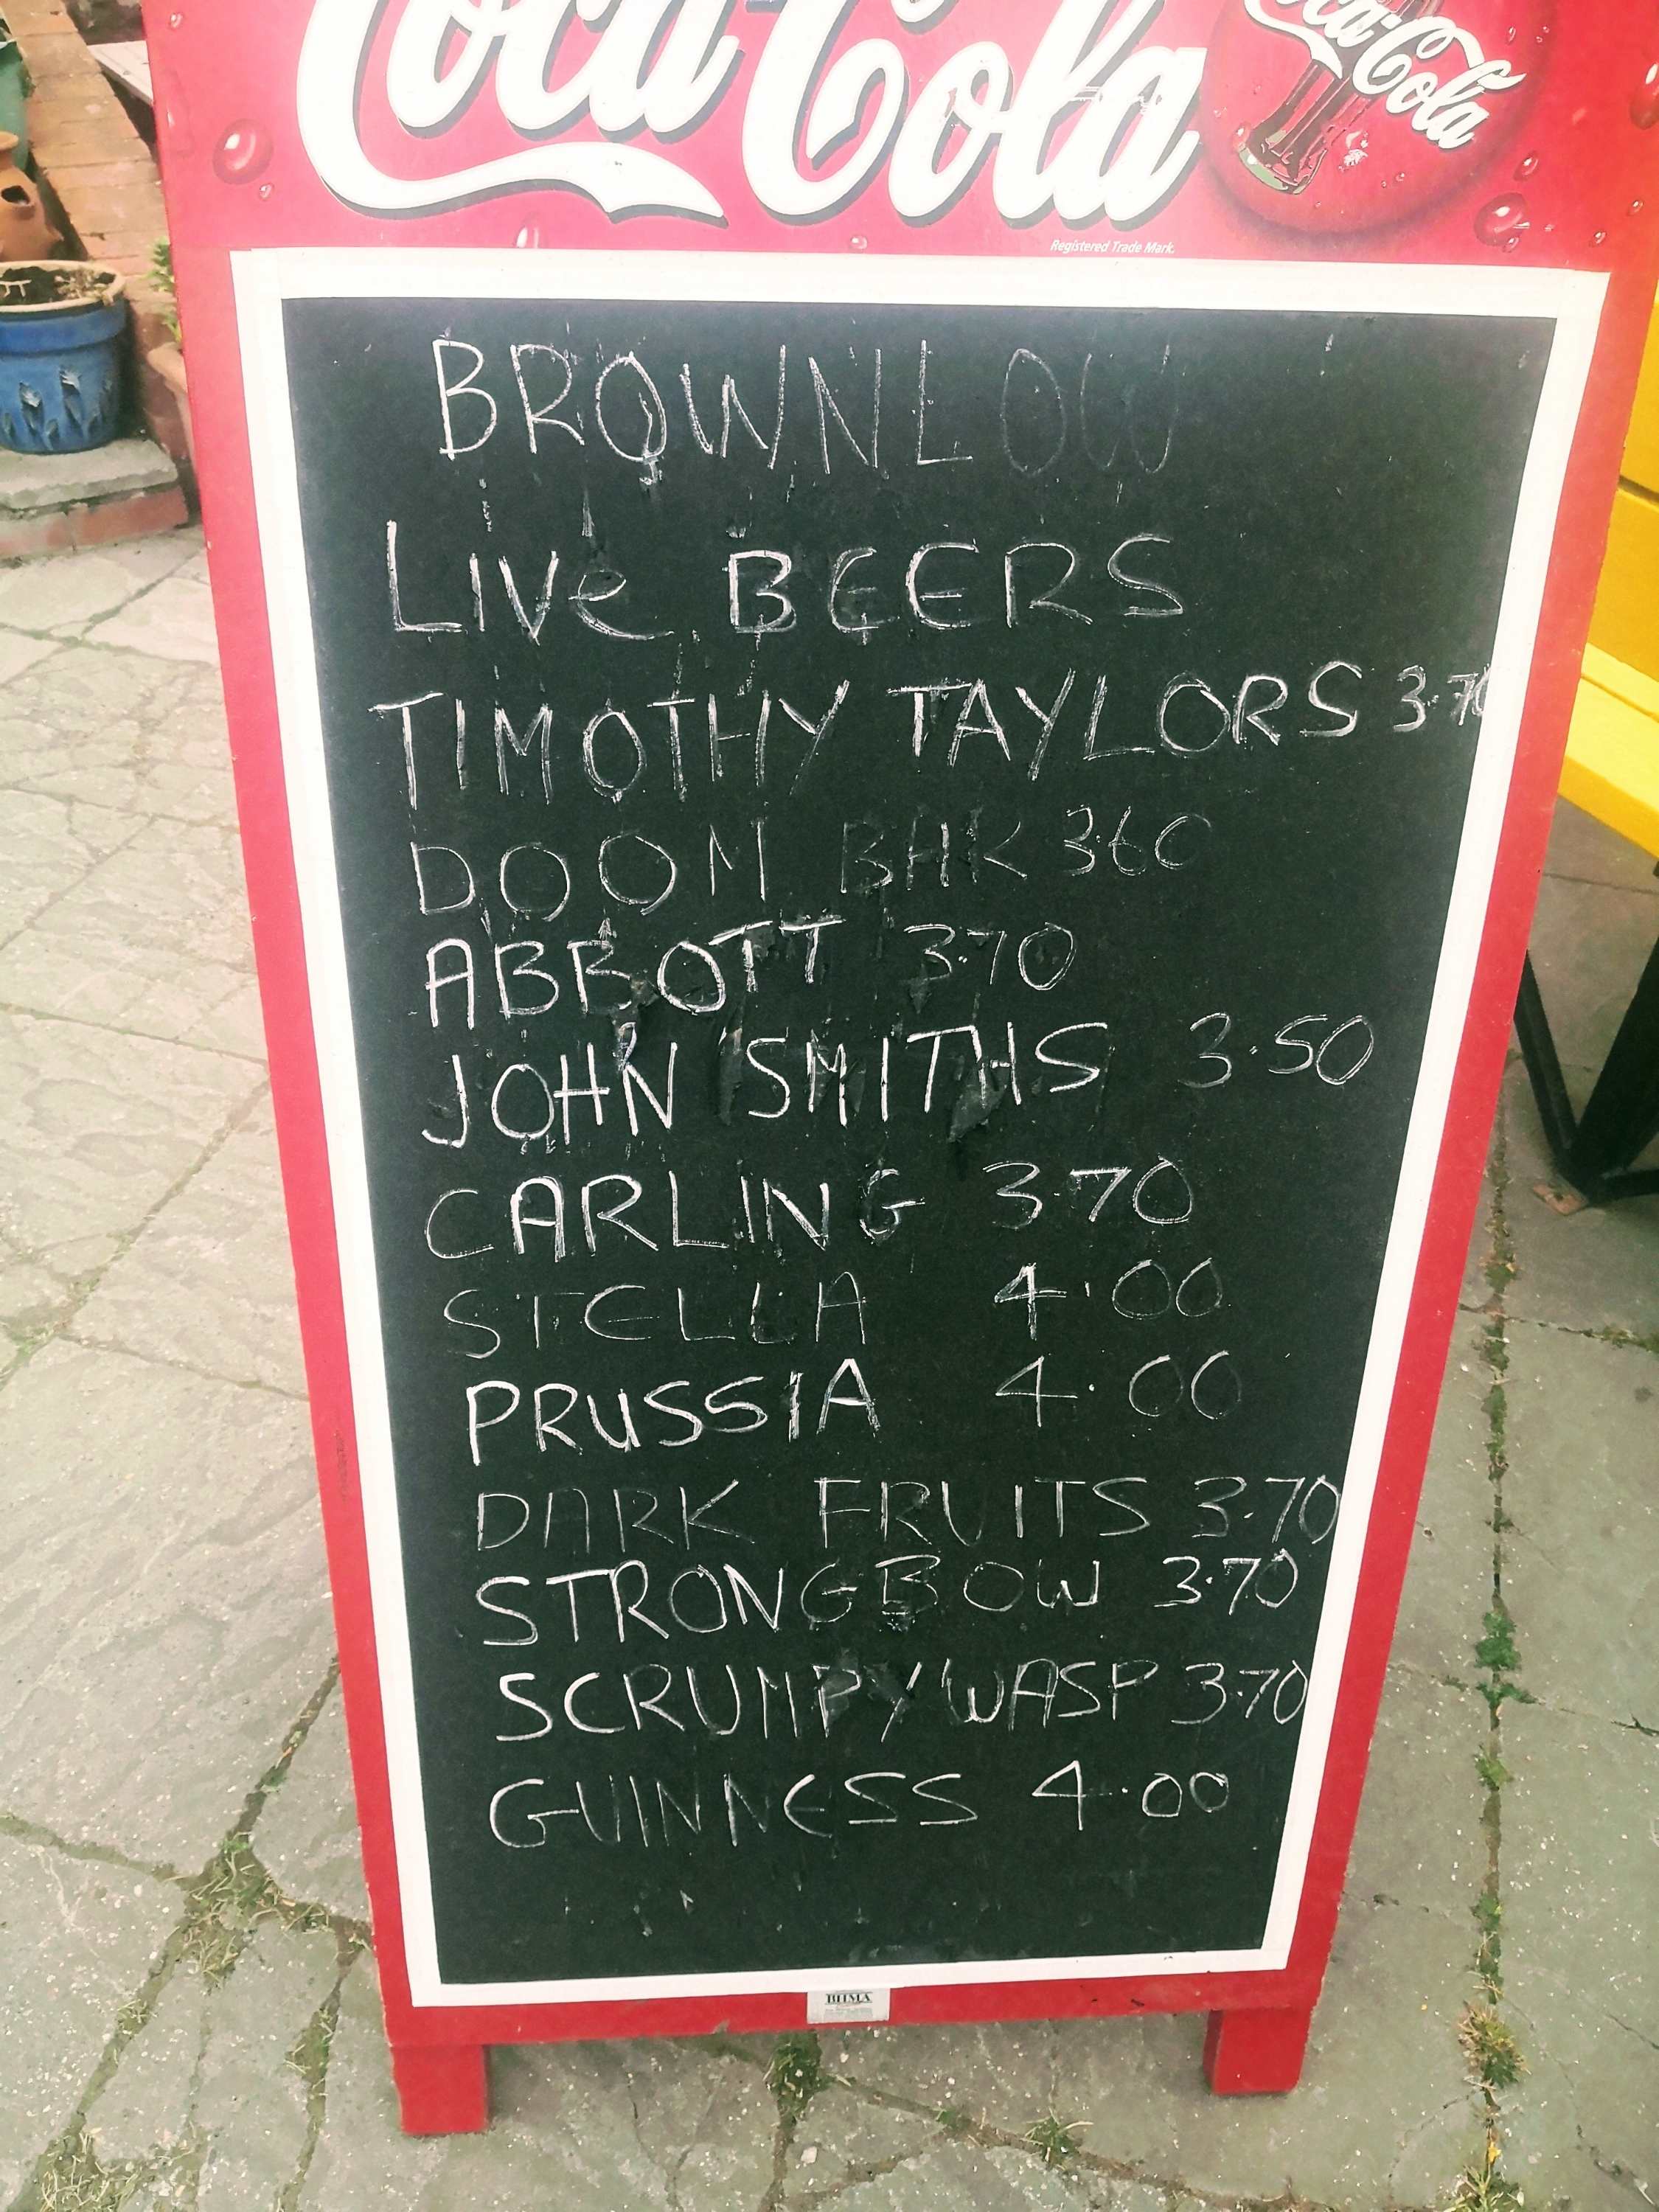 Coca-Cola
Coca-Cola
Registered Trade Mark.
BROWNLOW
LIVe BEERS
TIMOTHY TAYLORS 3.70
DOOM BAR 3.60
ABBOTT 3.70
JOHN SMITHS 3.50
CARLING 3.70
STELLA 4.00
PRUSSIA 4.00
DARK FRUITS 3.70
STRONGBOW 3.70
SCRUMPY WASP 3.70
GUINNESS 4.00